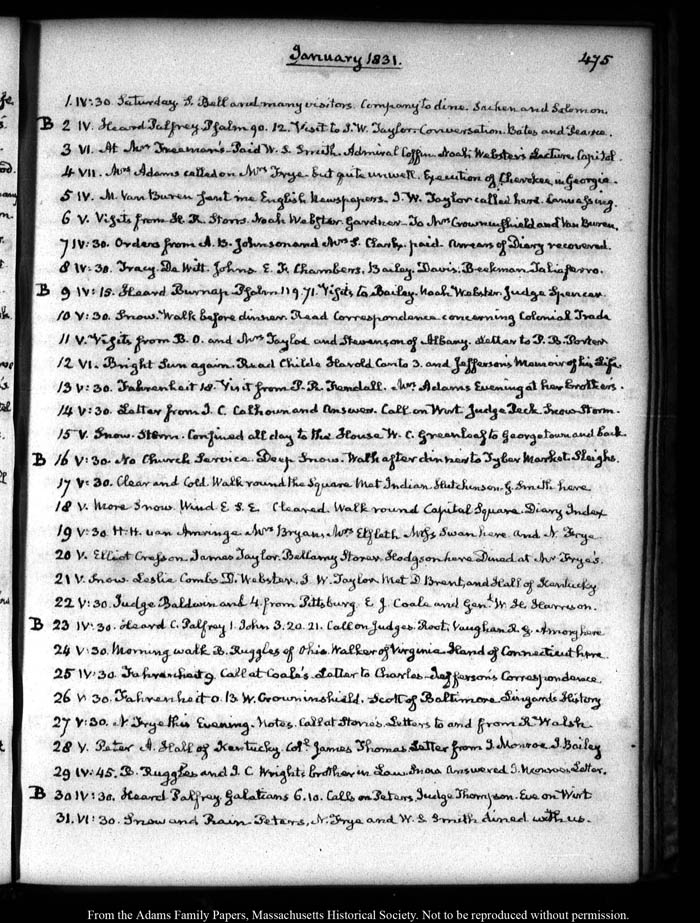 January 1831.
475
1. IV:30. Saturday. S. Bell and many visitors. Company to dine. Sachem and Solomon.
B 2 IV. Heard Palfrey Psalm 90. 12. Visit to J. W. Taylor. Conversation. Bates and Pearce.
3 VI. At Mrs Freeman's. Paid W. S. Smith. Admiral Coffin. Noah Webster's Lecture. Capitol.
4 VII. Mrs Adams called on Mrs Frye but quite unwell. Execution of Cherokee in Georgia.
5 IV. M. Van Buren sent me English Newspapers. J. W. Taylor called here. Canvassing.
6 V. Visits from H. R. Storrs. Noah Webster. Gardner. To Mrs Crowninshield and Van Buren.
7 IV:30. Orders from A. B. Johnson and Mrs S. Clark. paid. Arrears of Diary recovered.
8 IV:30. Tracy. De Witt. Johns. E. F. Chambers. Bailey. Davis. Beekman. Taliaferro.
B 9 IV:15. Heard Burnap Psalm 119.71. Visits to Bailey. Noah Webster. Judge Spencer.
10 V:30. Snow. Walk before dinner. Read Correspondence concerning Colonial Trade
11 V. Visits from B. O. and Mrs Tayloe and Stevenson of Albany. Letter to P. B. Porter
12 VI. Bright Sun again. Read Childe Harold Canto 3. and Jefferson's Memoir of his Life.
13 V:30. Fahrenheit 18. Visit from P. R. Fendall. Mrs Adams Evening at her brother's.
14 V:30. Letter from J. C. Calhoun and Answer. Call on Wirt. Judge Peck. Snow Storm.
15 V. Snow. Storm. Confined all day to the House. W. C. Greenleaf to Georgetown and back
B 16 V:30. No Church Service. Deep Snow. Walk after dinner to Tyber Market. Sleighs.
17 V:30. Clear and Cold. Walk round the Square. Met Indian. Hutchinson. G. Smith here
18 V. More Snow. Wind E. S. E. Cleared. Walk round Capitol Square. Diary Index
19 V:30. H. H. van Amringe. Mrs Bryan. Mrs Miss Swan here and N. Frye
20 V. Elliot Cresson. James Taylor. Bellamy Storer. Hodgson here. Dined at Mr Frye's.
21 V. Snow. Leslie Combs. D. Webster. J. W. Taylor. Met D. Brent, and Hall of Kentucky
22 V:30. Judge Baldwin and 4. from Pittsburg. E. J. Coale and Genl W. H. Harrison.
B 23 IV:30. Heard C. Palfrey 1. John 3. 20. 21. Call on Judges. Root, Vaughan R. G. Amory here
24 V:30. Morning walk. B. Ruggles of Ohio. Walker of Virginia. Hand of Connecticut here.
25 IV:30. Fahrenheit 9. Call at Coale's. Letter to Charles. Jefferson's Correspondence.
26 V:30. Fahrenheit 0. B. W. Crowninshield. Scott of Baltimore. Lingard's History
27 V:30. N. Frye this Evening. Notes. Call at Stone's. Letters to and from R. Walsh
28 V. Peter A. Hall of Kentucky. Coll James Thomas. Letter from J. Monroe. J. Bailey
29 IV:45. B. Ruggles and J. C. Wright's brother in Law. Snow. Answered J. Monroe's Letter.
B 30 IV:30. Heard Palfrey Galatians 6. 10. Calls on Peters, Judge Thompson. Eve on Wirt
31. VI:30. Snow and Rain. Peters, N. Frye and W. S. Smith dined with us.
From the Adams Family Papers, Massachusetts Historical Society. Not to be reproduced without permission.